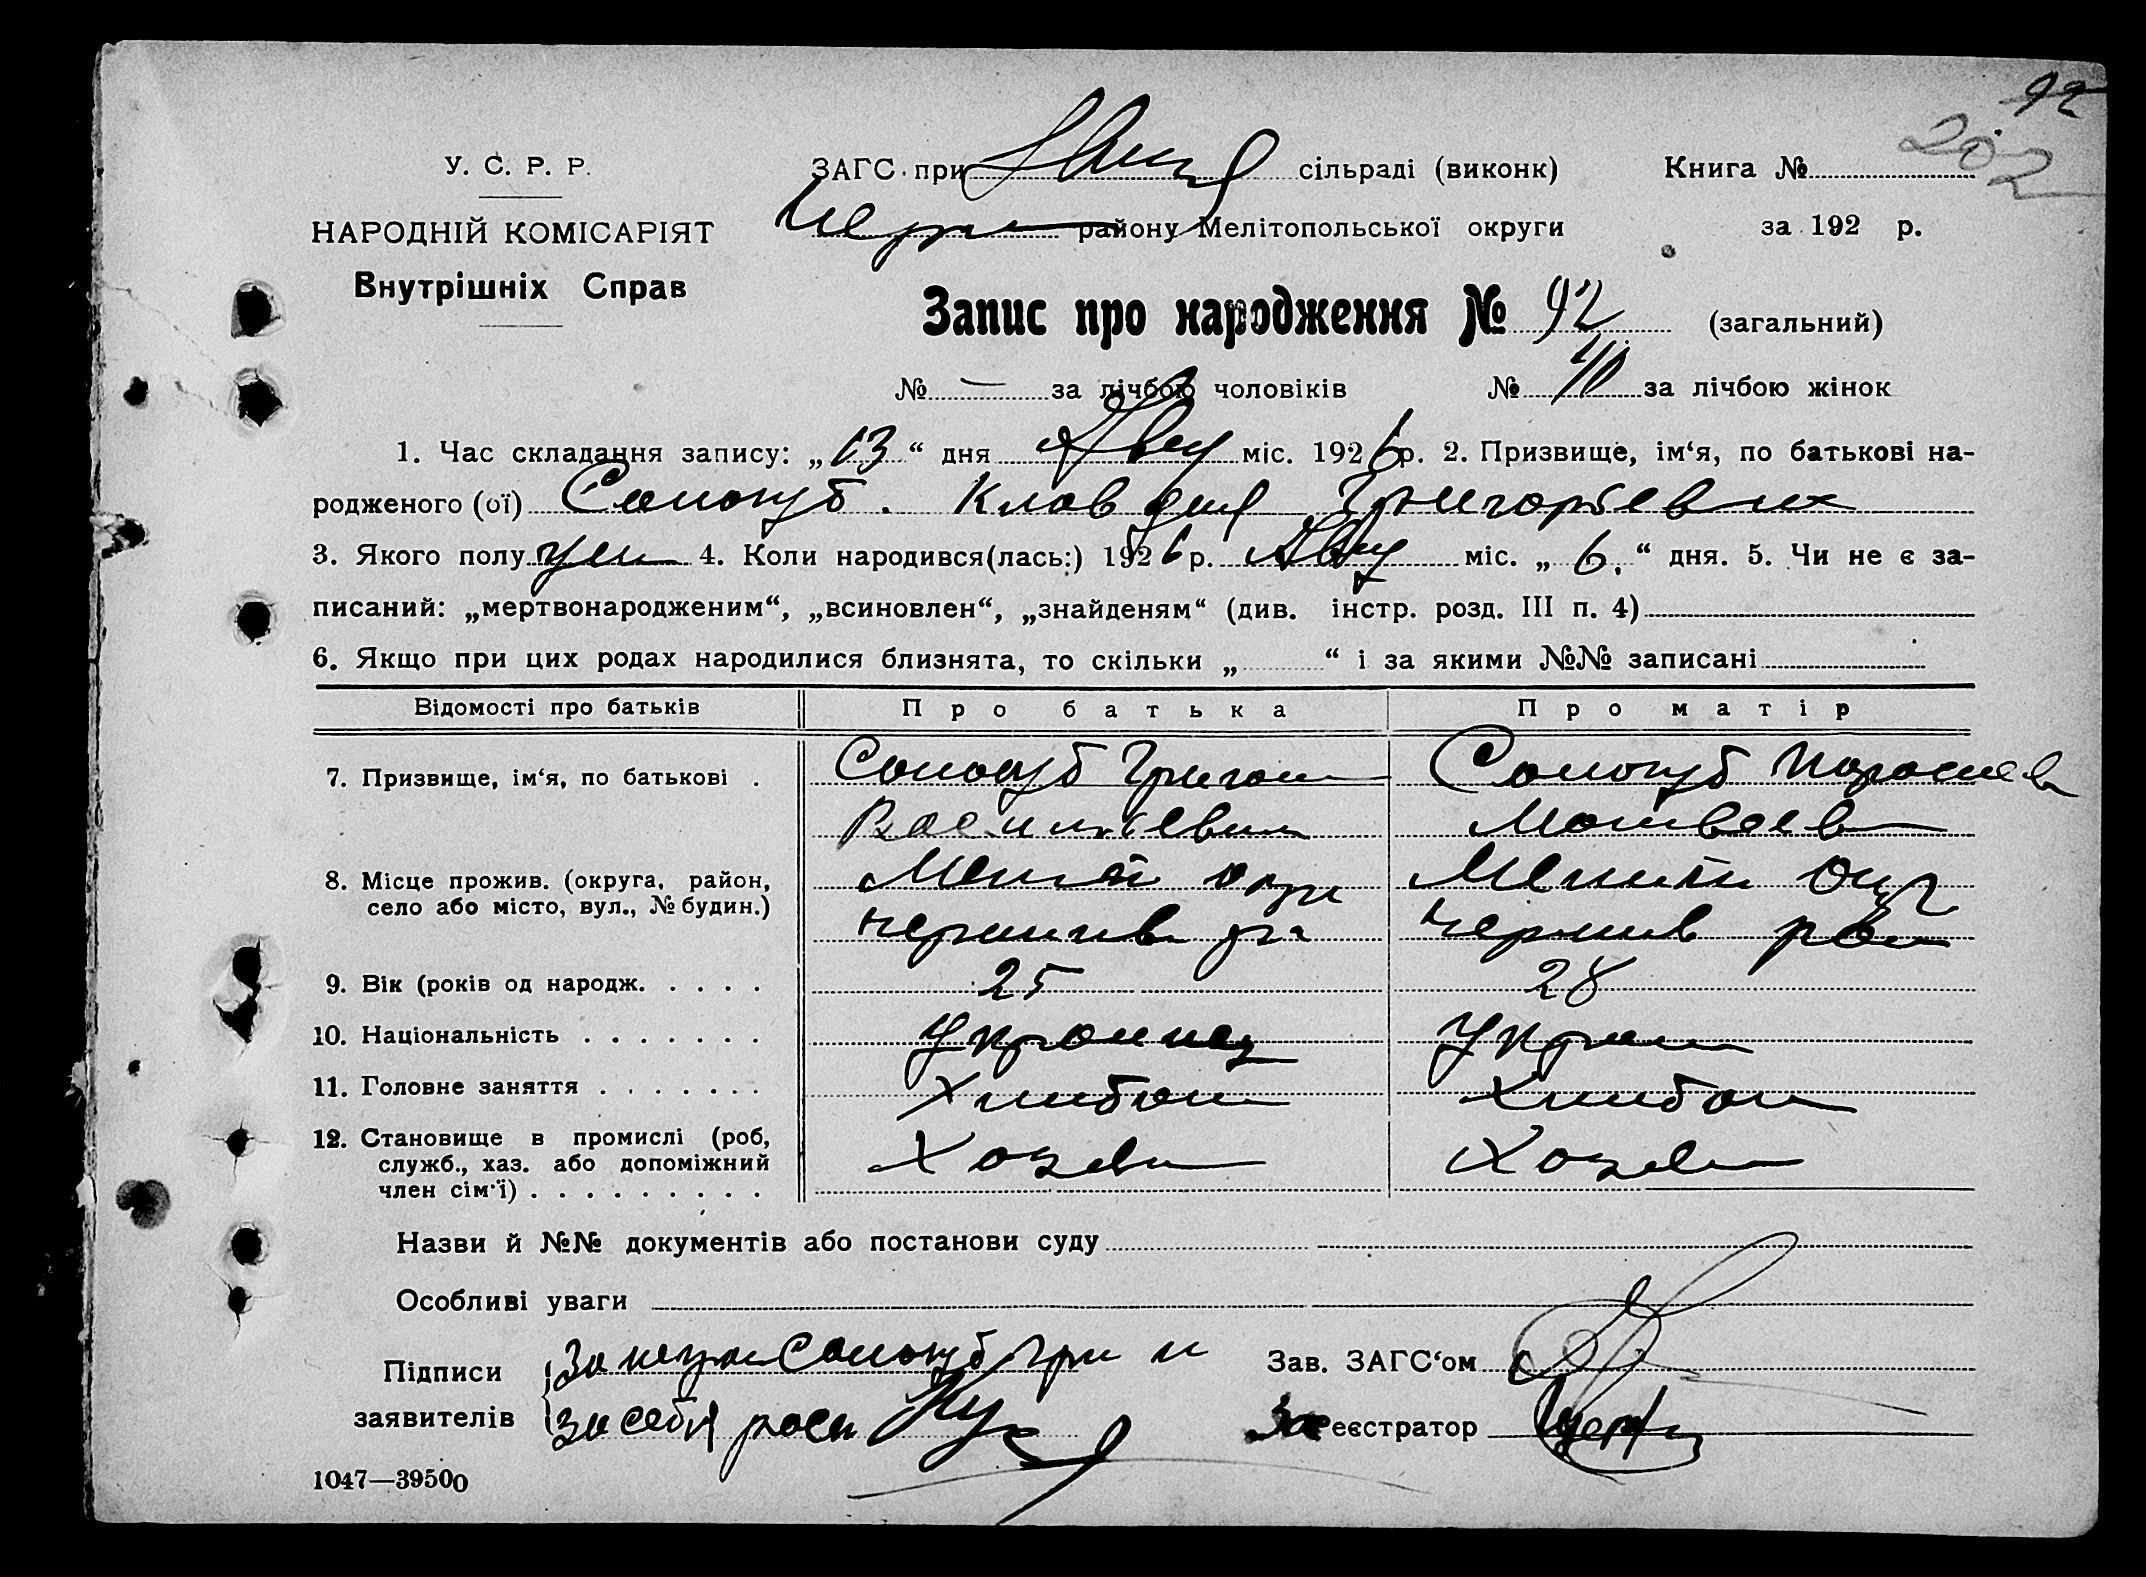 92
202
У. С. Р. Р.
ЗАГС при сільраді (виконк)
Книга №
НАРОДНІЙ КОМІСАРІЯТ
району Мелітопольської округи
за 192 р.
Внутрішніх Справ
Запис про народження № 92 (загальний)
№ — за лічбою чоловіків № 40 за лічбою жінок
1. Час складання запису: „13“ дня Авг міс. 1926 р. 2. Призвище, ім‘я, по батькові на-
родженого (ої) Сологуб Клавдия Григорьевн
3. Якого полу жен 4. Коли народився(лась:) 1926 р. Авг міс. „6.“ дня. 5. Чи не є за-
писаний: „мертвонародженим“, „всиновлен“, „знайденям“ (див. інстр. розд. III п. 4)
6. Якщо при цих родах народилися близнята, то скільки „ “ і за якими №№ записані
Відомості про батьків Про батька Про матір
7. Призвище, ім‘я, по батькові . Сологуб Григор Сологуб Парасков
Васильевич Матвеев
8. Місце прожив. (округа, район, Мелит окр Мелит Окр
село або місто, вул., № будин.)
Чернигив ра Чернив рай
9. Вік (років од народж. . . . . 25 28
10. Національність . . . . . . . Украинец Украин
11. Головне заняття . . . . . . . Хлибоп Хлибоп
12. Становище в промислі (роб, Хозяин Хозяи
служб., хаз. або допоміжний
член сім‘ї) . . . . . . . . .
Назви й №№ документів або постанови суду
Особливі уваги
Підписи Сологуб Гри
Зав. ЗАГС‘ом
заявителів за себя росп
За еєстратор
1047—39500